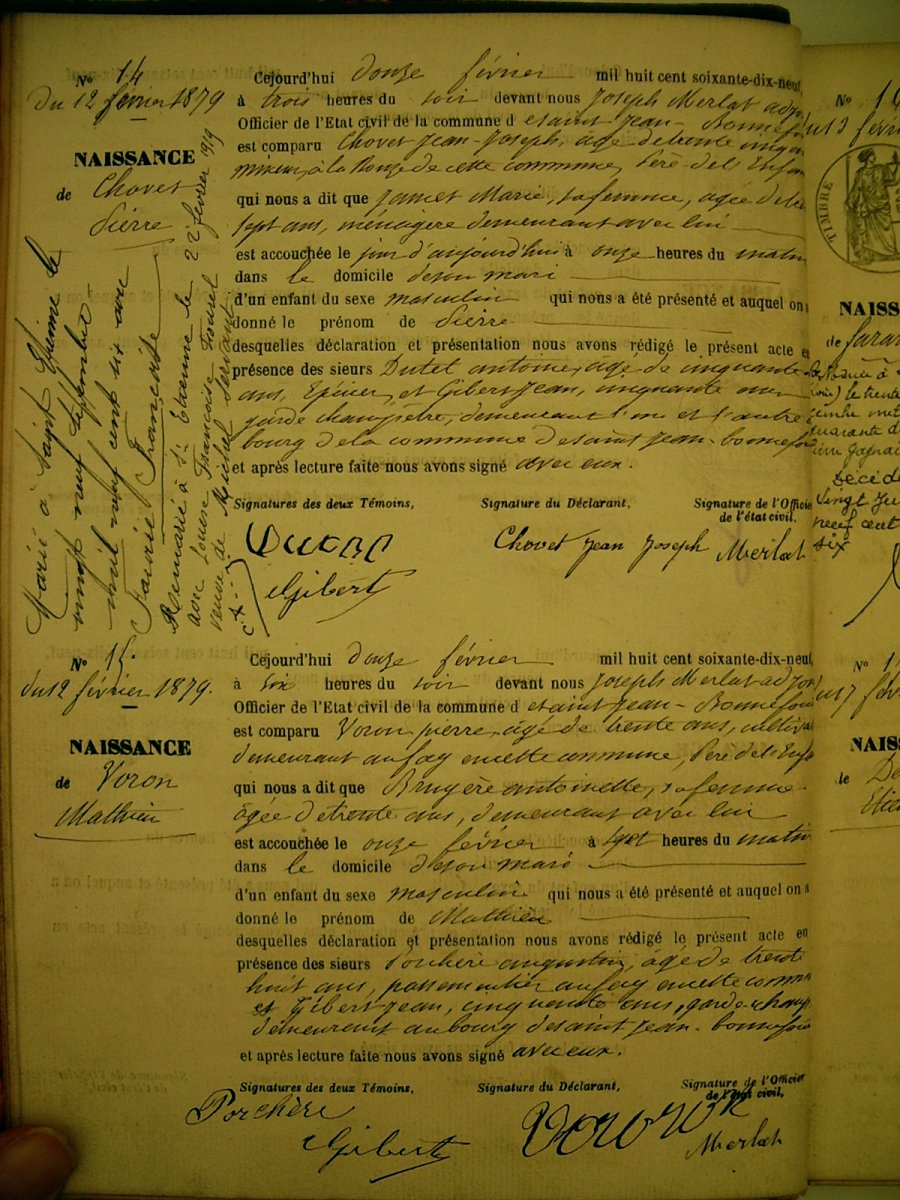 N° 14
du 12 février 1879
NAISSANCE
de Chovet
Pierre
Marié à Saint Etienne le
vingt neuf septembre
mil neuf cent six avec
Faure Françoise
Remarié à St Etienne le 22 février 1919
avec Louise Françoise
veuve de Michel
Cejourd'hui douze février mil huit cent soixante-dix-neuf,
à trois heures du soir devant nous Joseph Merlat adjoi
Officier de l'Etat civil de la commune d e saint Jean-Bonnefon
est comparu Chovet Jean-Joseph, âgé de trente cinq an
mineur, à la de cette commune, Père de l'Enfan
qui nous a dit que Jamet Marie, sa femme, agée de
sept ans, ménagère demeurant avec lui
est accouchée le jour d'aujourd'hui à onze heures du matin
dans le domicile de son mari
d'un enfant du sexe masculin qui nous a été présenté et auquel on a
donné le prénom de Pierre
desquelles déclaration et présentation nous avons rédigé le présent acte en
présence des sieurs Dutel antoine, âgé de cinquante
ans, Epicier, et Gibert Jean, cinquante ans
garde champetre, demeurant l'un et l'autre
bourg de la commune de saint Jean-bonnefon
et après lecture faite nous avons signé avec eux.
Signatures des deux Témoins, Signature du Déclarant, Signature de l'Officie
de l'état civil,
Chovet Jean Joseph Merlat
Gibert
N° 15.
du 12 février 1879.
NAISSANCE
de Voron
Mathieu
Cejourd'hui douze février mil huit cent soixante-dix-neuf,
à six heures du soir devant nous Joseph Merlat adjoi
Officier de l'Etat civil de la commune d e saint Jean-Bonnefon
est comparu Voron pierre, âgé de trente ans, cultiva
demeurant au fay en cette commune, Père de l'Enfa
qui nous a dit que Bruyère antoinette, sa femme
âgée de trente ans, demeurant avec lui
est accouchée le onze février à sept heures du matin
dans le domicile de son mari
d'un enfant du sexe masculin qui nous a été présenté et auquel on a
donné le prénom de Mathieu
desquelles déclaration et présentation nous avons rédigé le présent acte en
présence des sieurs Porchère augustin, âgé de trente
huit ans, passementier au fay en cette comm
et Gibert Jean, cinquante ans, garde champ
demeurant au bourg de saint Jean-bonnefon
et après lecture faite nous avons signé avec eux.
Signatures des deux Témoins, Signature du Déclarant, Signature de l'Officier
de l'état civil,
Porchère Voron Merlat
Gibert
N° 1
TIMBRE
NAISS
de
Décidé
vingt
neuf cent
six
N° 1
NAISS
de